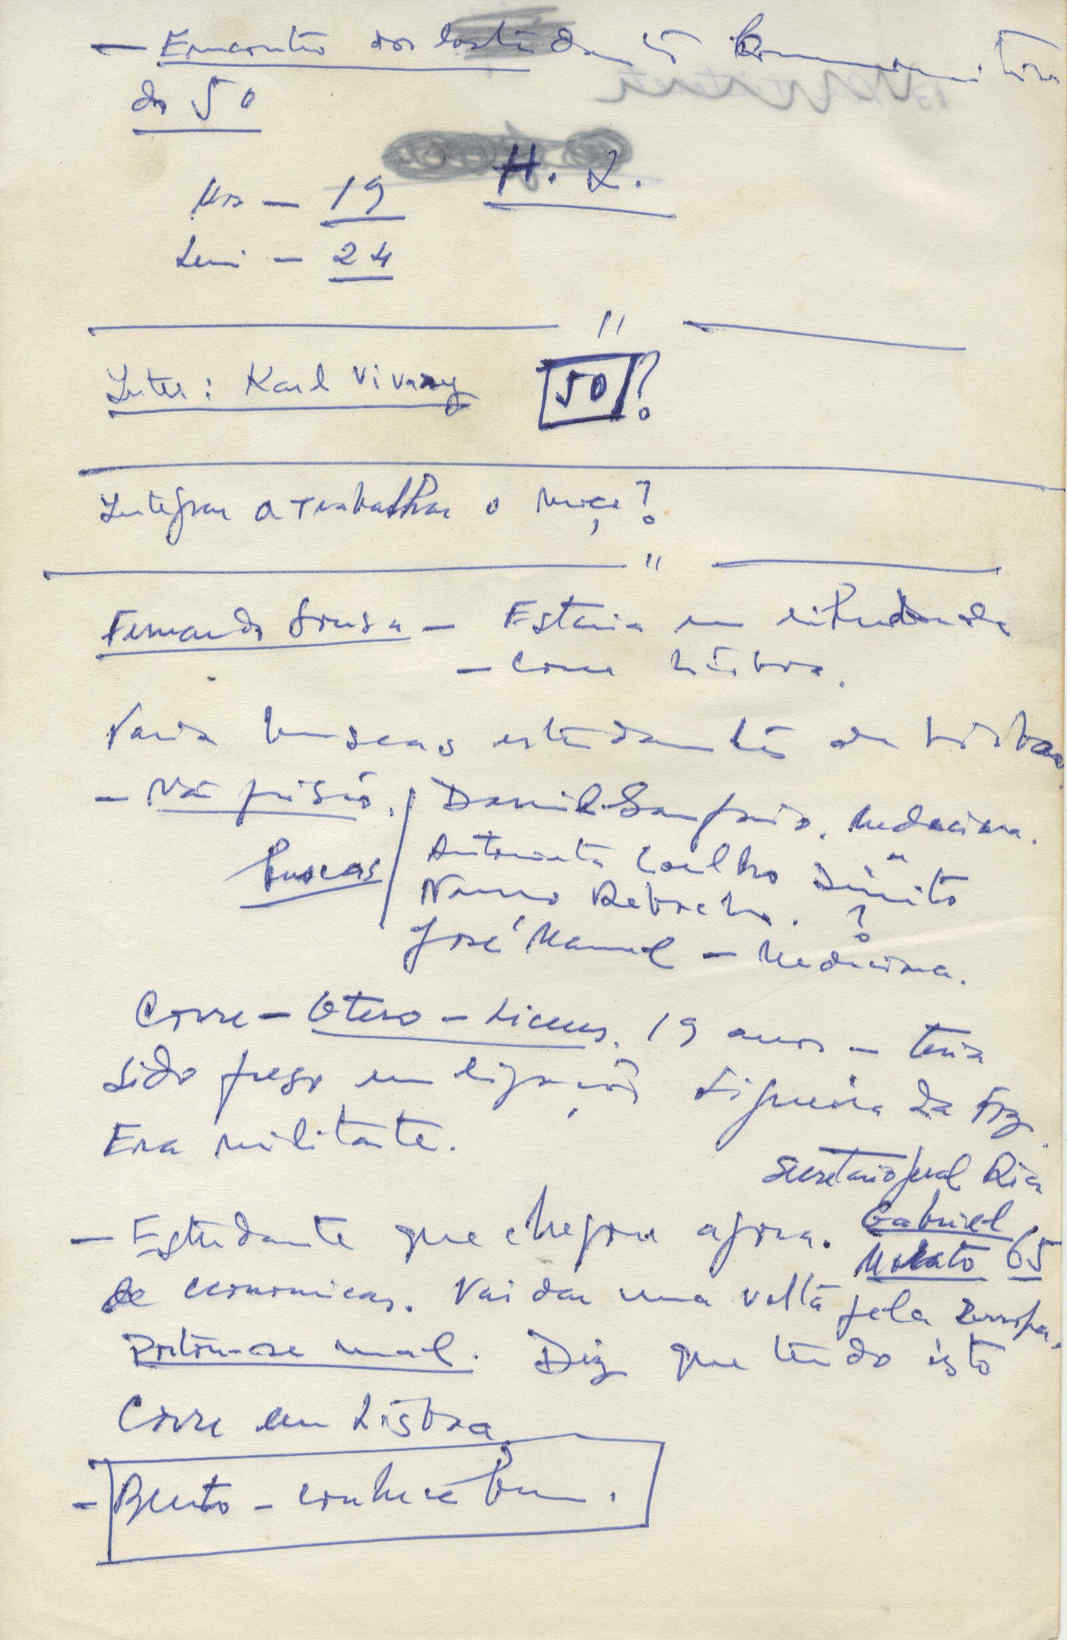 — Encontro dos
do 50
H. L.
Nós — 19
Leni — 24
"
Inter: Karl Vivary 50?
Integrar a trabalhar o moço?
"
Fernando Sousa — Estaria em liberdade
— Corre Lisboa.
Varia buscas estudantes de Lisboa
— Na prisão. Daniel Sampaio. Medicina.
buscas Antonieta Coelho Direito
Nuno Rebocho. ?
José Manuel — Medicina.
Corre — Otero — Liceus. 19 anos — teria
sido preso em ligação Figueira da Foz.
Era militante.
Secretário geral Ria
— Estudante que chegou agora. Gabriel
Morato 65
de economicas. Vai dar uma volta pela Europa.
Portou-se mal. Diz que tudo isto
Corre em Lisboa
— Bento — conhece bem.